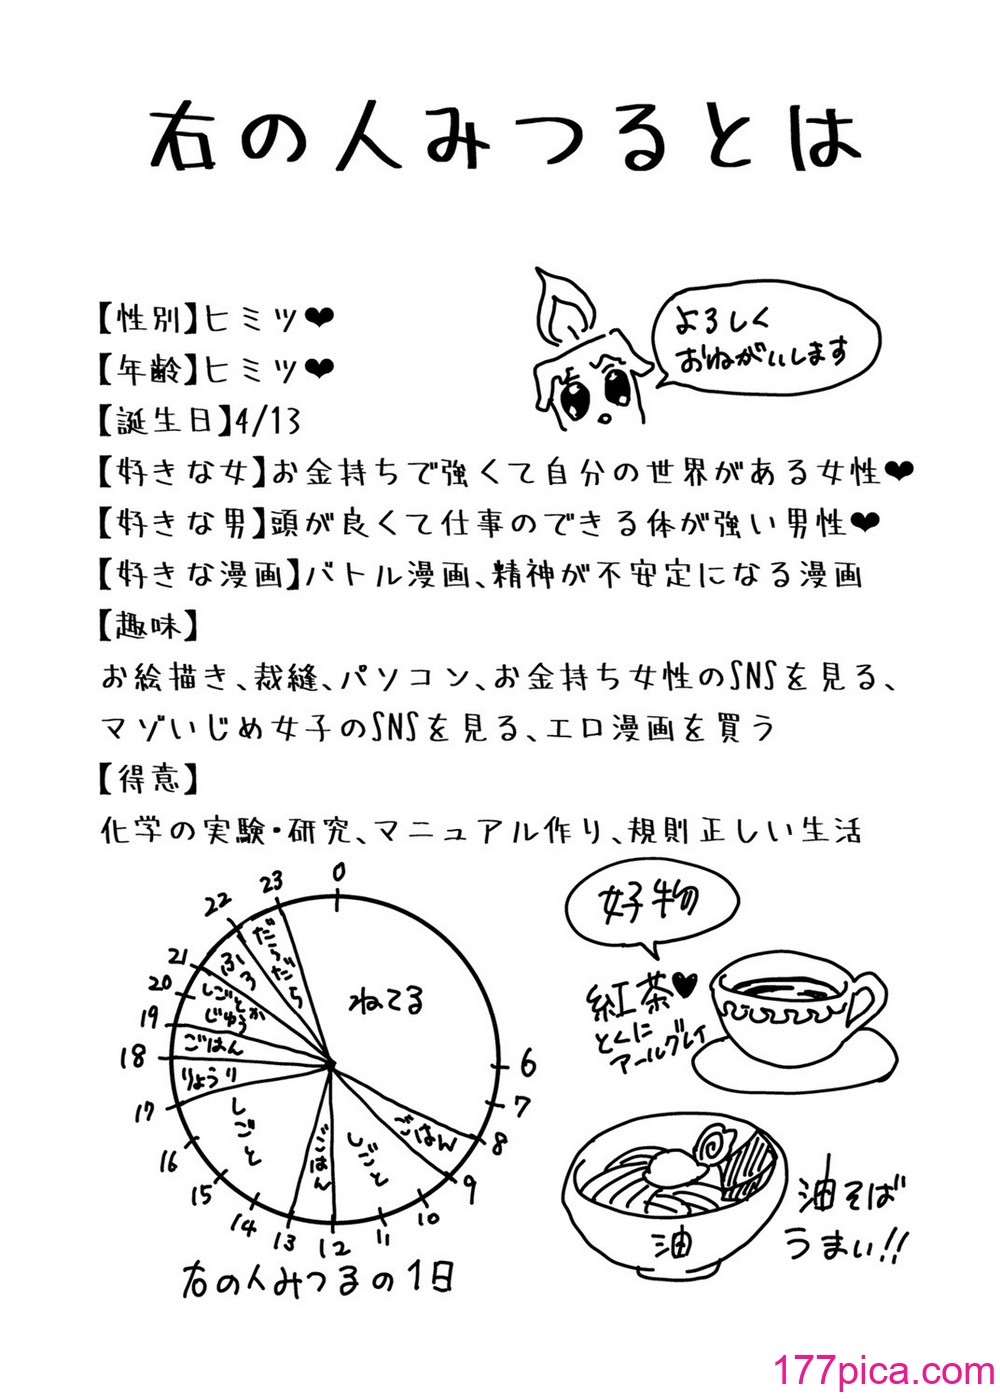 右の人みつるとは
【性別】ヒミツ❤
【年齢】ヒミツ❤
【誕生日】4/13
よろしく
おねがいします
【好きな女】お金持ちで強くて自分の世界がある女性❤
【好きな男】頭が良くて仕事のできる体が強い男性❤
【好きな漫画】バトル漫画、精神が不安定になる漫画
【趣味】
お絵描き、裁縫、パソコン、お金持ち女性のSNSを見る、
マゾいじめ女子のSNSを見る、エロ漫画を買う
【得意】
化学の実験・研究、マニュアル作り、規則正しい生活
0
6
7
8
9
10
11
12
13
14
15
16
17
18
19
20
21
22
23
ねてる
ごはん
しごと
ごはん
しごと
りょうり
ごはん
しごとか
じゅう
ふろ
だらだら
右の人みつるの1日
好物
紅茶♥
とくに
アールグレイ
油
油そば
うまい!!
177pica.com